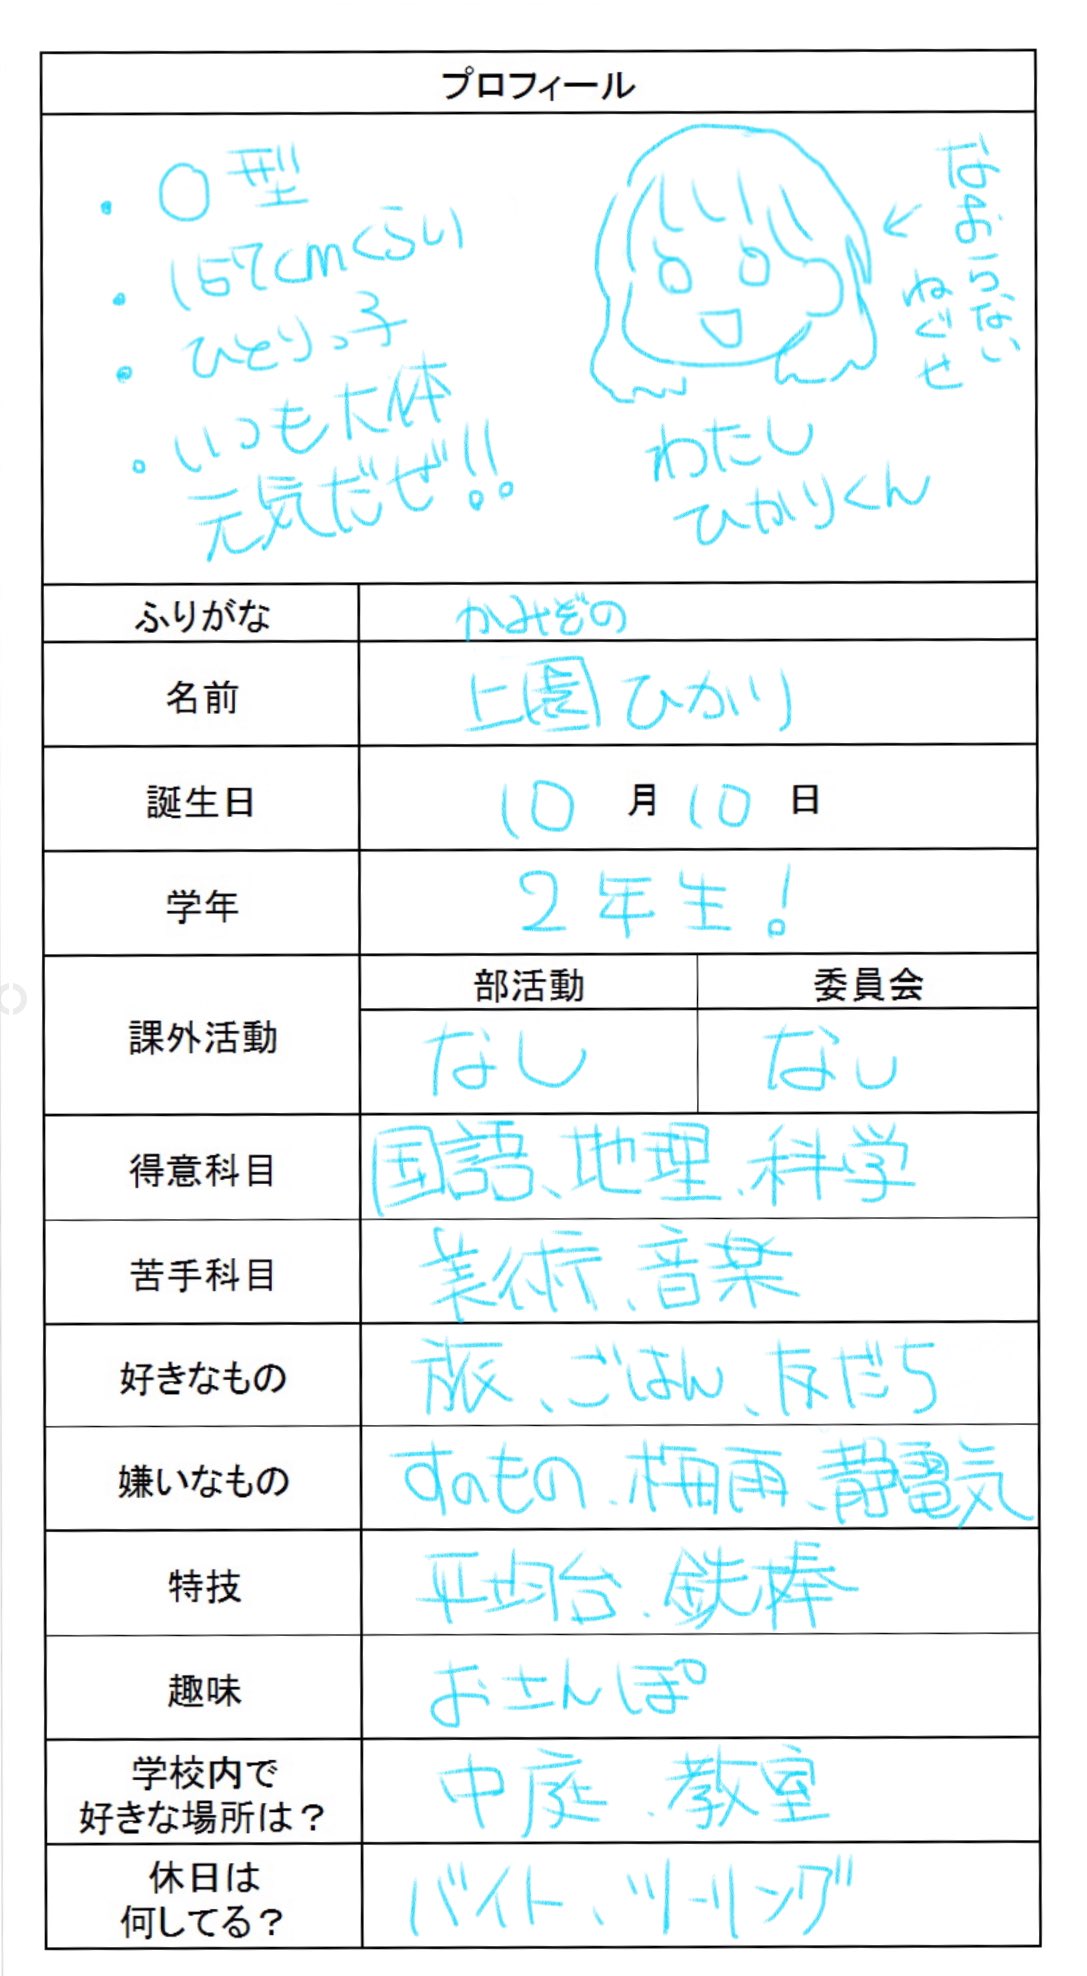 プロフィール
・O型
・157cmくらい
・ひとりっ子
・いつも大体
元気だぜ!!
なおらない
ねぐせ
わたし
ひかりくん
ふりがな かみぞの
名前 上園ひかり
誕生日 10月10日
学年 2年生!
課外活動 部活動 委員会
なし なし
得意科目 国語、地理、科学
苦手科目 美術、音楽
好きなもの 旅、ごはん、友だち
嫌いなもの すのもの、梅雨、静電気
特技 平均台、鉄棒
趣味 おさんぽ
学校内で
好きな場所は? 中庭、教室
休日は
何してる? バイト、ツーリング